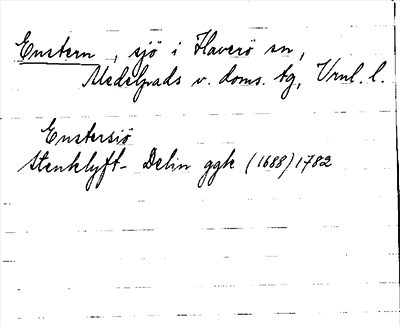 Enstern, sjö i Haverö sn,
Medelpads v. doms. tg, Vrnl. l.
Enstersiö
Stenklyft- Delin ggk (1688) 1782